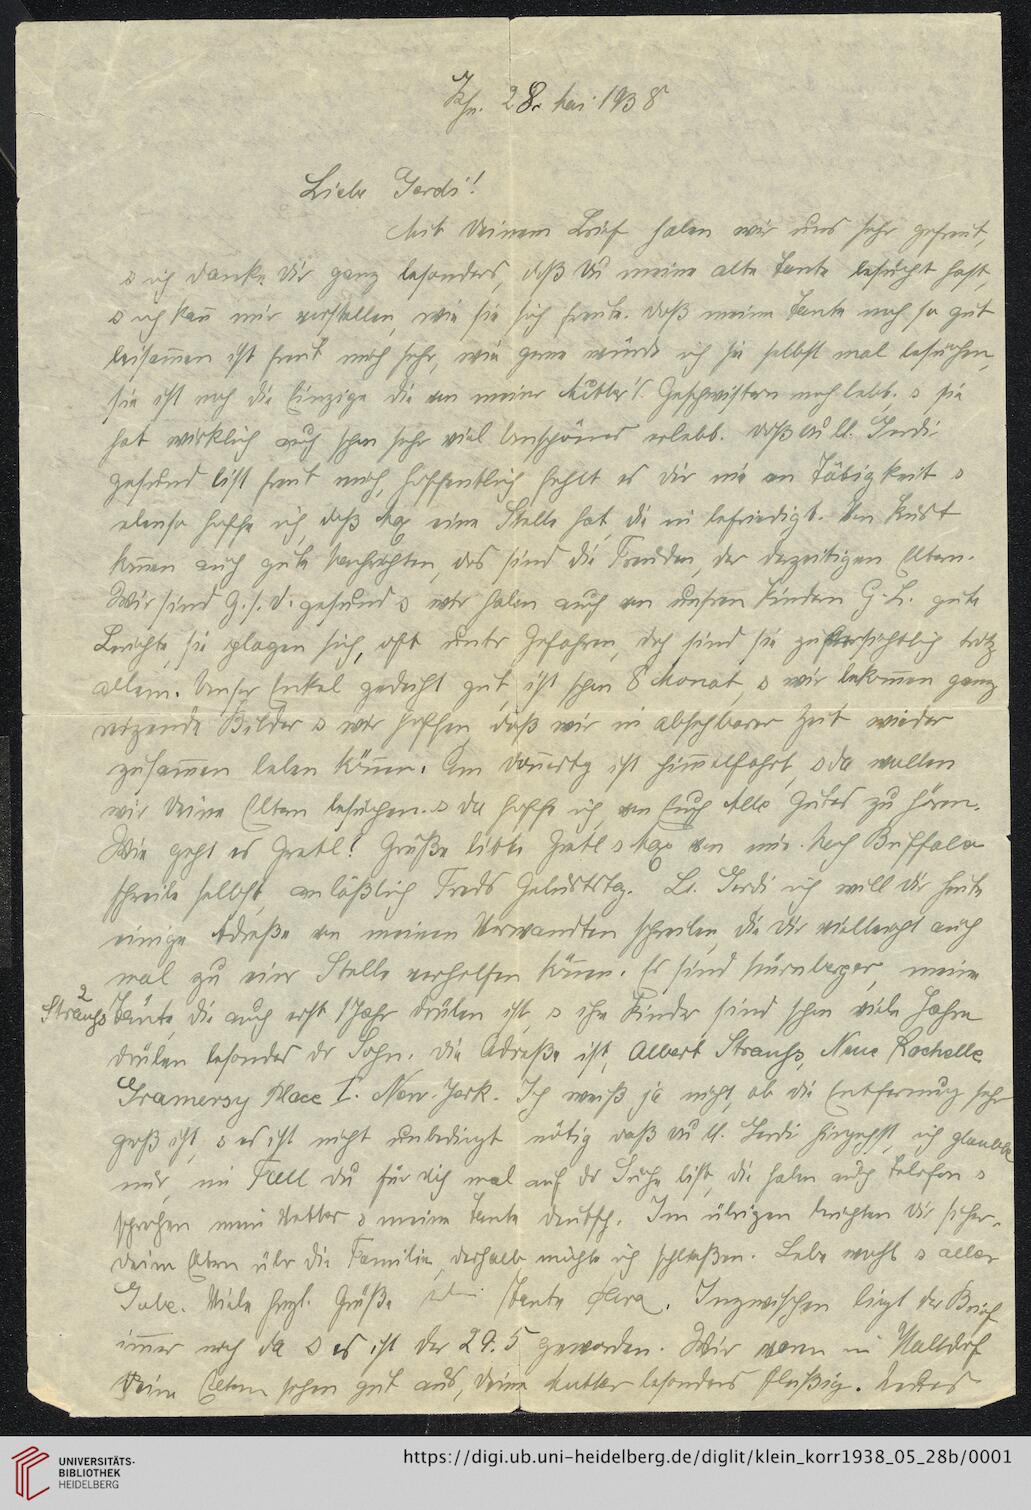 Khe. 28. Mai 1938
Liebe Gerdi!
Mit Deinem Brief haben wir uns sehr gefreut,
u ich danke Dir ganz besonders, daß Du meine alte Tante besucht hast,
u ich kann mir vorstellen, wie sie sich freute. Daß meine Tante noch so gut
beisammen ist freut mich sehr, wie gerne würde ich sie selbst mal besuchen,
sie ist noch die Einzige die von meiner Mutter's Geschwistern noch lebt. u sie
hat wirklich auch schon sehr viel Unschönes erlebt. Daß Du lb. Gerdi
gesund bist freut mich, hoffentlich fehlt es Dir nie an Tätigkeit u
ebenso hoffe ich, daß Max eine Stelle hat, die in befriedigt. Von Kurt
kamen auch gute Nachrichten, das sind die Freuden, der derzeitigen Eltern.
Wir sind G. s. D. gesund u wir haben auch von unsren Kindern G. L. gute
Berichte, sie plagen sich, oft unter Gefahren, doch sind sie zuversichtlich trotz
allem. Unser Enkel gedeiht gut, ist schon 8 Monat, u wir bekommen ganz
reizende Bilder u wir hoffen, daß wir in absehbarer Zeit wieder
zusammen leben können. Am Donnerstg ist Himmelfahrt, u da wollen
wir Deine Eltern besuchen. u da hoffe ich von Euch Alle Gutes zu hören.
Wie geht es Gretl? Grüße bitte Gretl u Max von mir. Nach Buffalo
schreibe selbst, anläßlich Freds Geburtstg. Lb. Gerdi ich will Dir heute
einige Adreße von meinen Verwandten schreiben, die Dir vielleicht auch
mal zu einer Stelle verhelfen können. Es sind Nürnberger, meine
2
Strauhs Tante, die auch erst 1 Jahr drüben ist, u ihre Kinder sind schon viele Jahre
drüben besonders der Sohn. Die Adreße ist, Albert Strauhs, Neue Rochelle
Gramersy Place I. New-York. Ich weiß ja nicht, ob die Entfernung sehr
groß ist, u es ist nicht unbedingt nötig daß Du lb. Gerdi hingehst, ich glaube
nur, im Fall Du für Dich mal auf der Suche bist, die haben auch Telefon u
sprechen mein Vetter u meine Tante deutsch. Im übrigen berichten Dir sicher
Deine Eltern über die Familie, deshalb möchte ich schließen. Lebe wohl u alles
Gute. Viele herzl. Grüße Tante Flora. Inzwischen liegt der Brief
immer noch da u es ist der 29. 5 geworden. Wir waren in Walldorf
Deine Eltern sehen gut aus, Deine Mutter besonders fleißig.
https://digi.ub.uni-heidelberg.de/diglit/klein_korr1938_05_28b/0001
UNIVERSITÄTS-
BIBLIOTHEK
HEIDELBERG